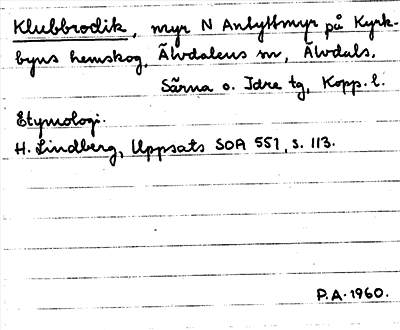 Klubbrodik, myr N Anlyttmyr på Kyrk-
byns hemskog, Älvdalens sn, Älvdals,
Särna o. Idre tg, Kopp. l.
Etymologi.
H. Lindberg, Uppsats SOA 551, s. 113.
P.A. 1960.